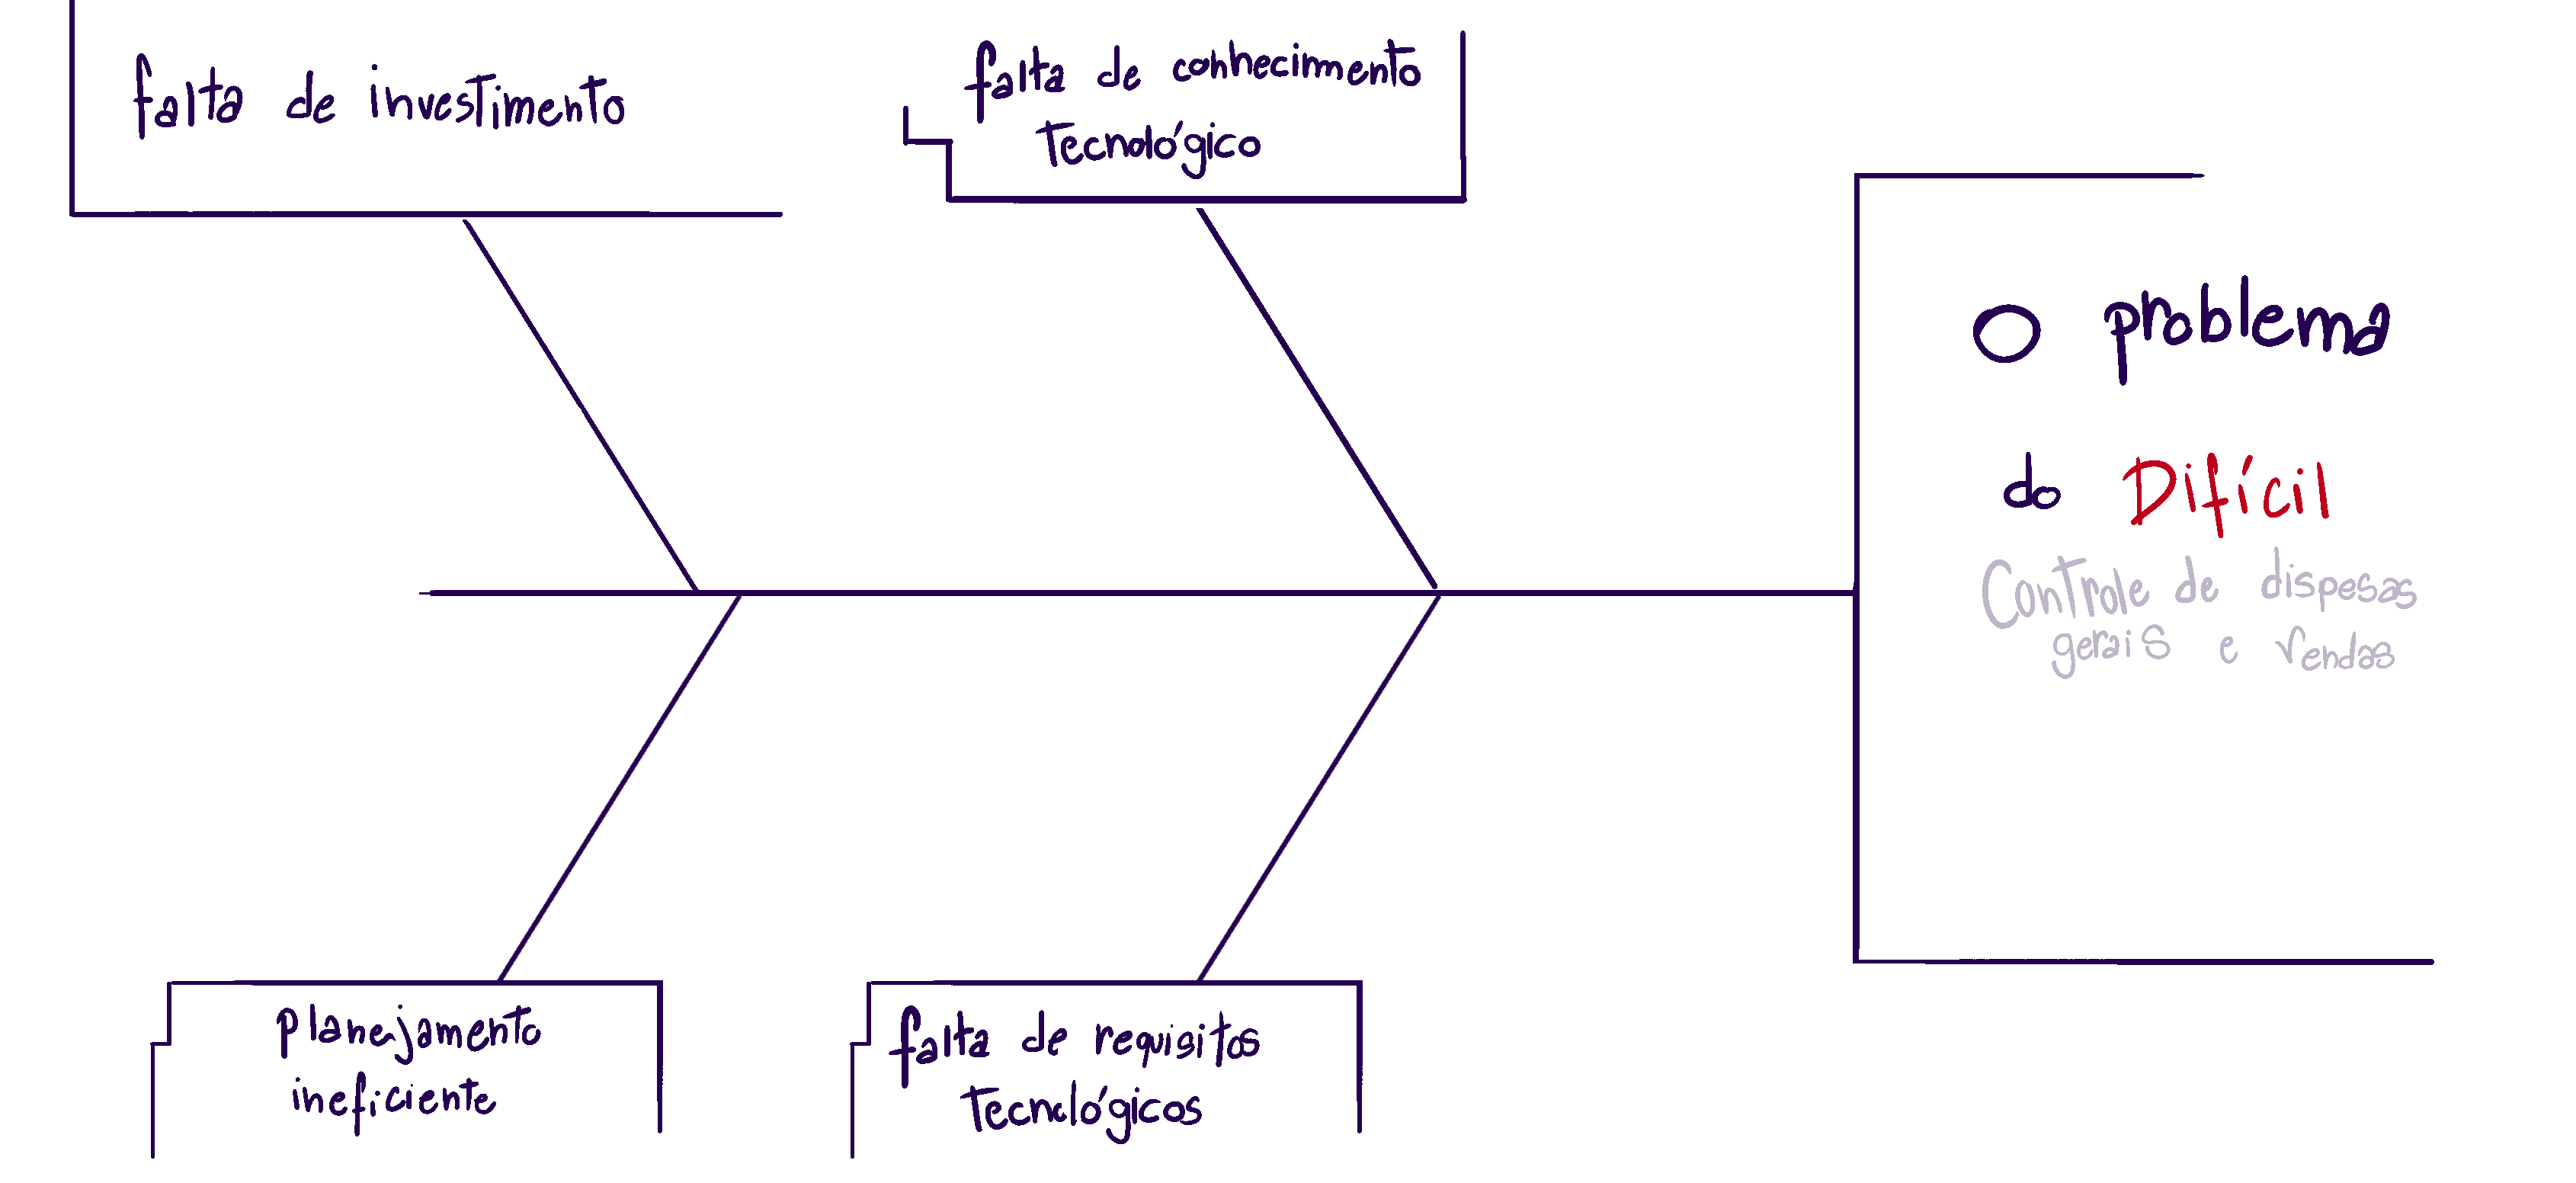 falta de investimento
falta de conhecimento
tecnológico
O problema
do Difícil
Controle de dispesas
gerais e vendas
planejamento
ineficiente
falta de requisitos
tecnológicos